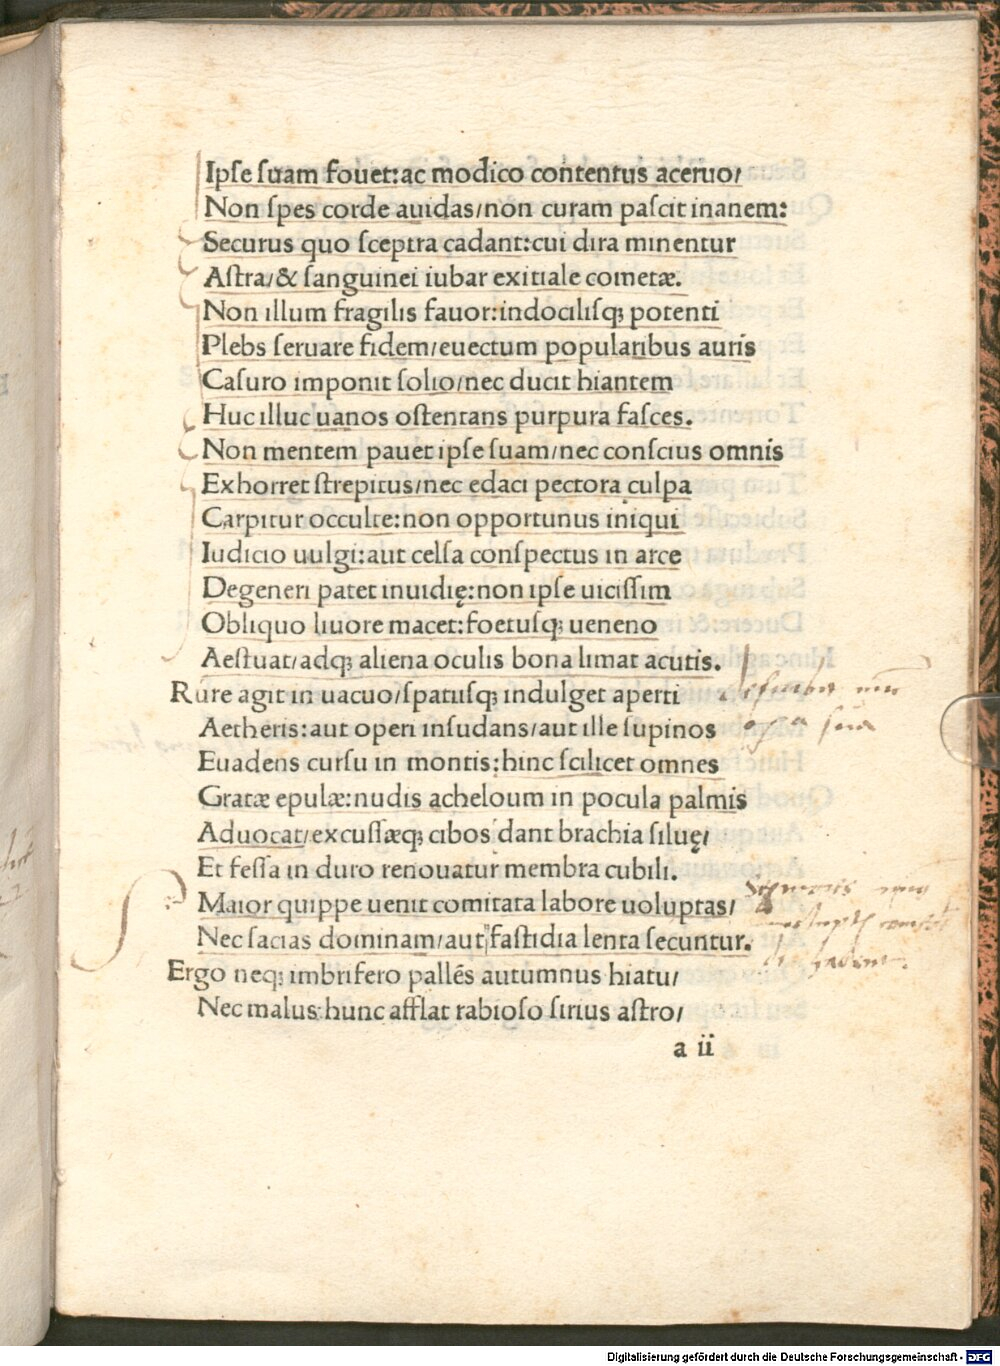 Ipſe ſuam fouet:ac modico contentus aceruo/
Non ſpes corde auidas/non curam paſcit inanem:
Securus quo ſceptra cadant:cui dira minentur
Aſtra/& ſanguinei iubar exitiale cometæ.
Non illum fragilis fauor:indociliſqꝫ potenti
Plebs ſeruare fidem/euectum popularibus auris
Caſuro imponit ſolio/nec ducit hiantem
Huc illuc uanos oſtentans purpura faſces.
Non mentem pauet ipſe ſuam/nec conſcius omnis
Exhorret ſtrepitus/nec edaci pectora culpa
Carpitur occulte:non opportunus iniqui
Iudicio uulgi:aut celſa conſpectus in arce
Degeneri patet inuidię:non ipſe uiciſſim
Obliquo liuore macet:foetuſqꝫ ueneno
Aeſtuat/adqꝫ aliena oculis bona limat acutis.
Rure agit in uacuo/ſpatiiſqꝫ indulget aperti
Aetheris:aut operi inſudans/aut ille ſupinos
Euadens curſu in montis:hinc ſcilicet omnes
Gratæ epulæ:nudis acheloum in pocula palmis
Aduocat/excuſſæqꝫ cibos dant brachia ſiluę/
Et feſſa in duro renouatur membra cubili.
Maior quippe uenit comitata labore uoluptas/
Nec ſacias dominam/aut faſtidia lenta ſecuntur.
Ergo neqꝫ imbrifero pallēs autumnus hiatu/
Nec malus hunc afflat rabioſo ſirius aſtro/
a ii
Digitalisierung gefördert durch die Deutsche Forschungsgemeinschaft - DFG